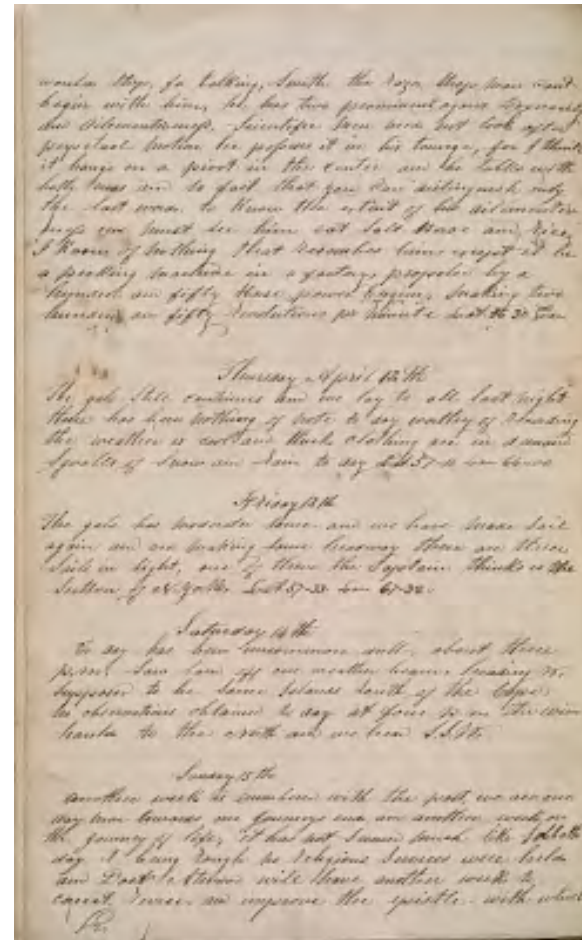 stop, for talking, Smith the Razor Strop man can't
begin with him, he has two prominent
Scientific men need not look after
perpetual motion he possess it in his tounge, for I think
it hangs on a pivot in the center and he talks with
both ends and so fast that you can distinguish only
the last word. to know the extent of his
you must see him eat Salt Horse and Rice,
I know of nothing that resembles him except it be
a machine in a factory, propeled by a
hundred and fifty Horse power Engine, making two
hundred and fifty Revolutions pr minute
Thursday April 12th
The gale still continues and we lay to all last night
there has been nothing of note to day worthy of
the weather is cold and thick clothing are in demand
Squalls of Snow and Rain to day Lat 57
Friday 13th
The gale has moderated some and we have made sail
again and are making some headway there are three
Sail in sight, one of them the Captain thinks is the
Sutton of N. York. Lat 57-33 Lon 67-32.
Saturday 14th
To day has been uncommon dull. about three
p.m. Saw land off our weather
supposed to be some Islands South of the Cape.
no observations obtained to day at four p m the wind
hauled to the North and we
Sunday 15th
Another week is numbered with the past, we are one
day more towards our journeys end and another week on
the journey of life, it has not seemed much like Sabbath
day it being rough no religious Services were held
and will have another week to
correct, revise and improve the epistle with which